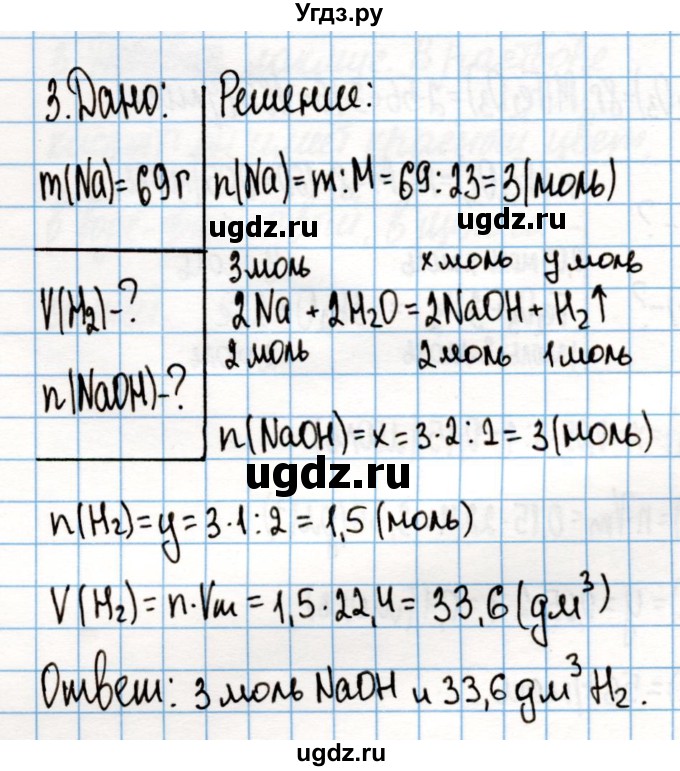 Угdz.ру
3. Дано:
m(Na)=69г
V(H₂)-?
n(NaOH)-?
Решение:
n(Na)=m:M=69:23=3(моль)
ugdz.ru ugdz.ru
3моль xмоль yмоль
2Na+2H₂O=2NaOH+H₂↑
2моль 2моль 1моль
n(NaOH)=x=3·2:2=3(моль)
ugdz.ru
n(H₂)=y=3·1:2=1,5(моль)
V(H₂)=n·Vm=1,5·22,4=33,6(дм³)
Ответ: 3моль NaOH и 33,6дм³ H₂.
ugdz.ru